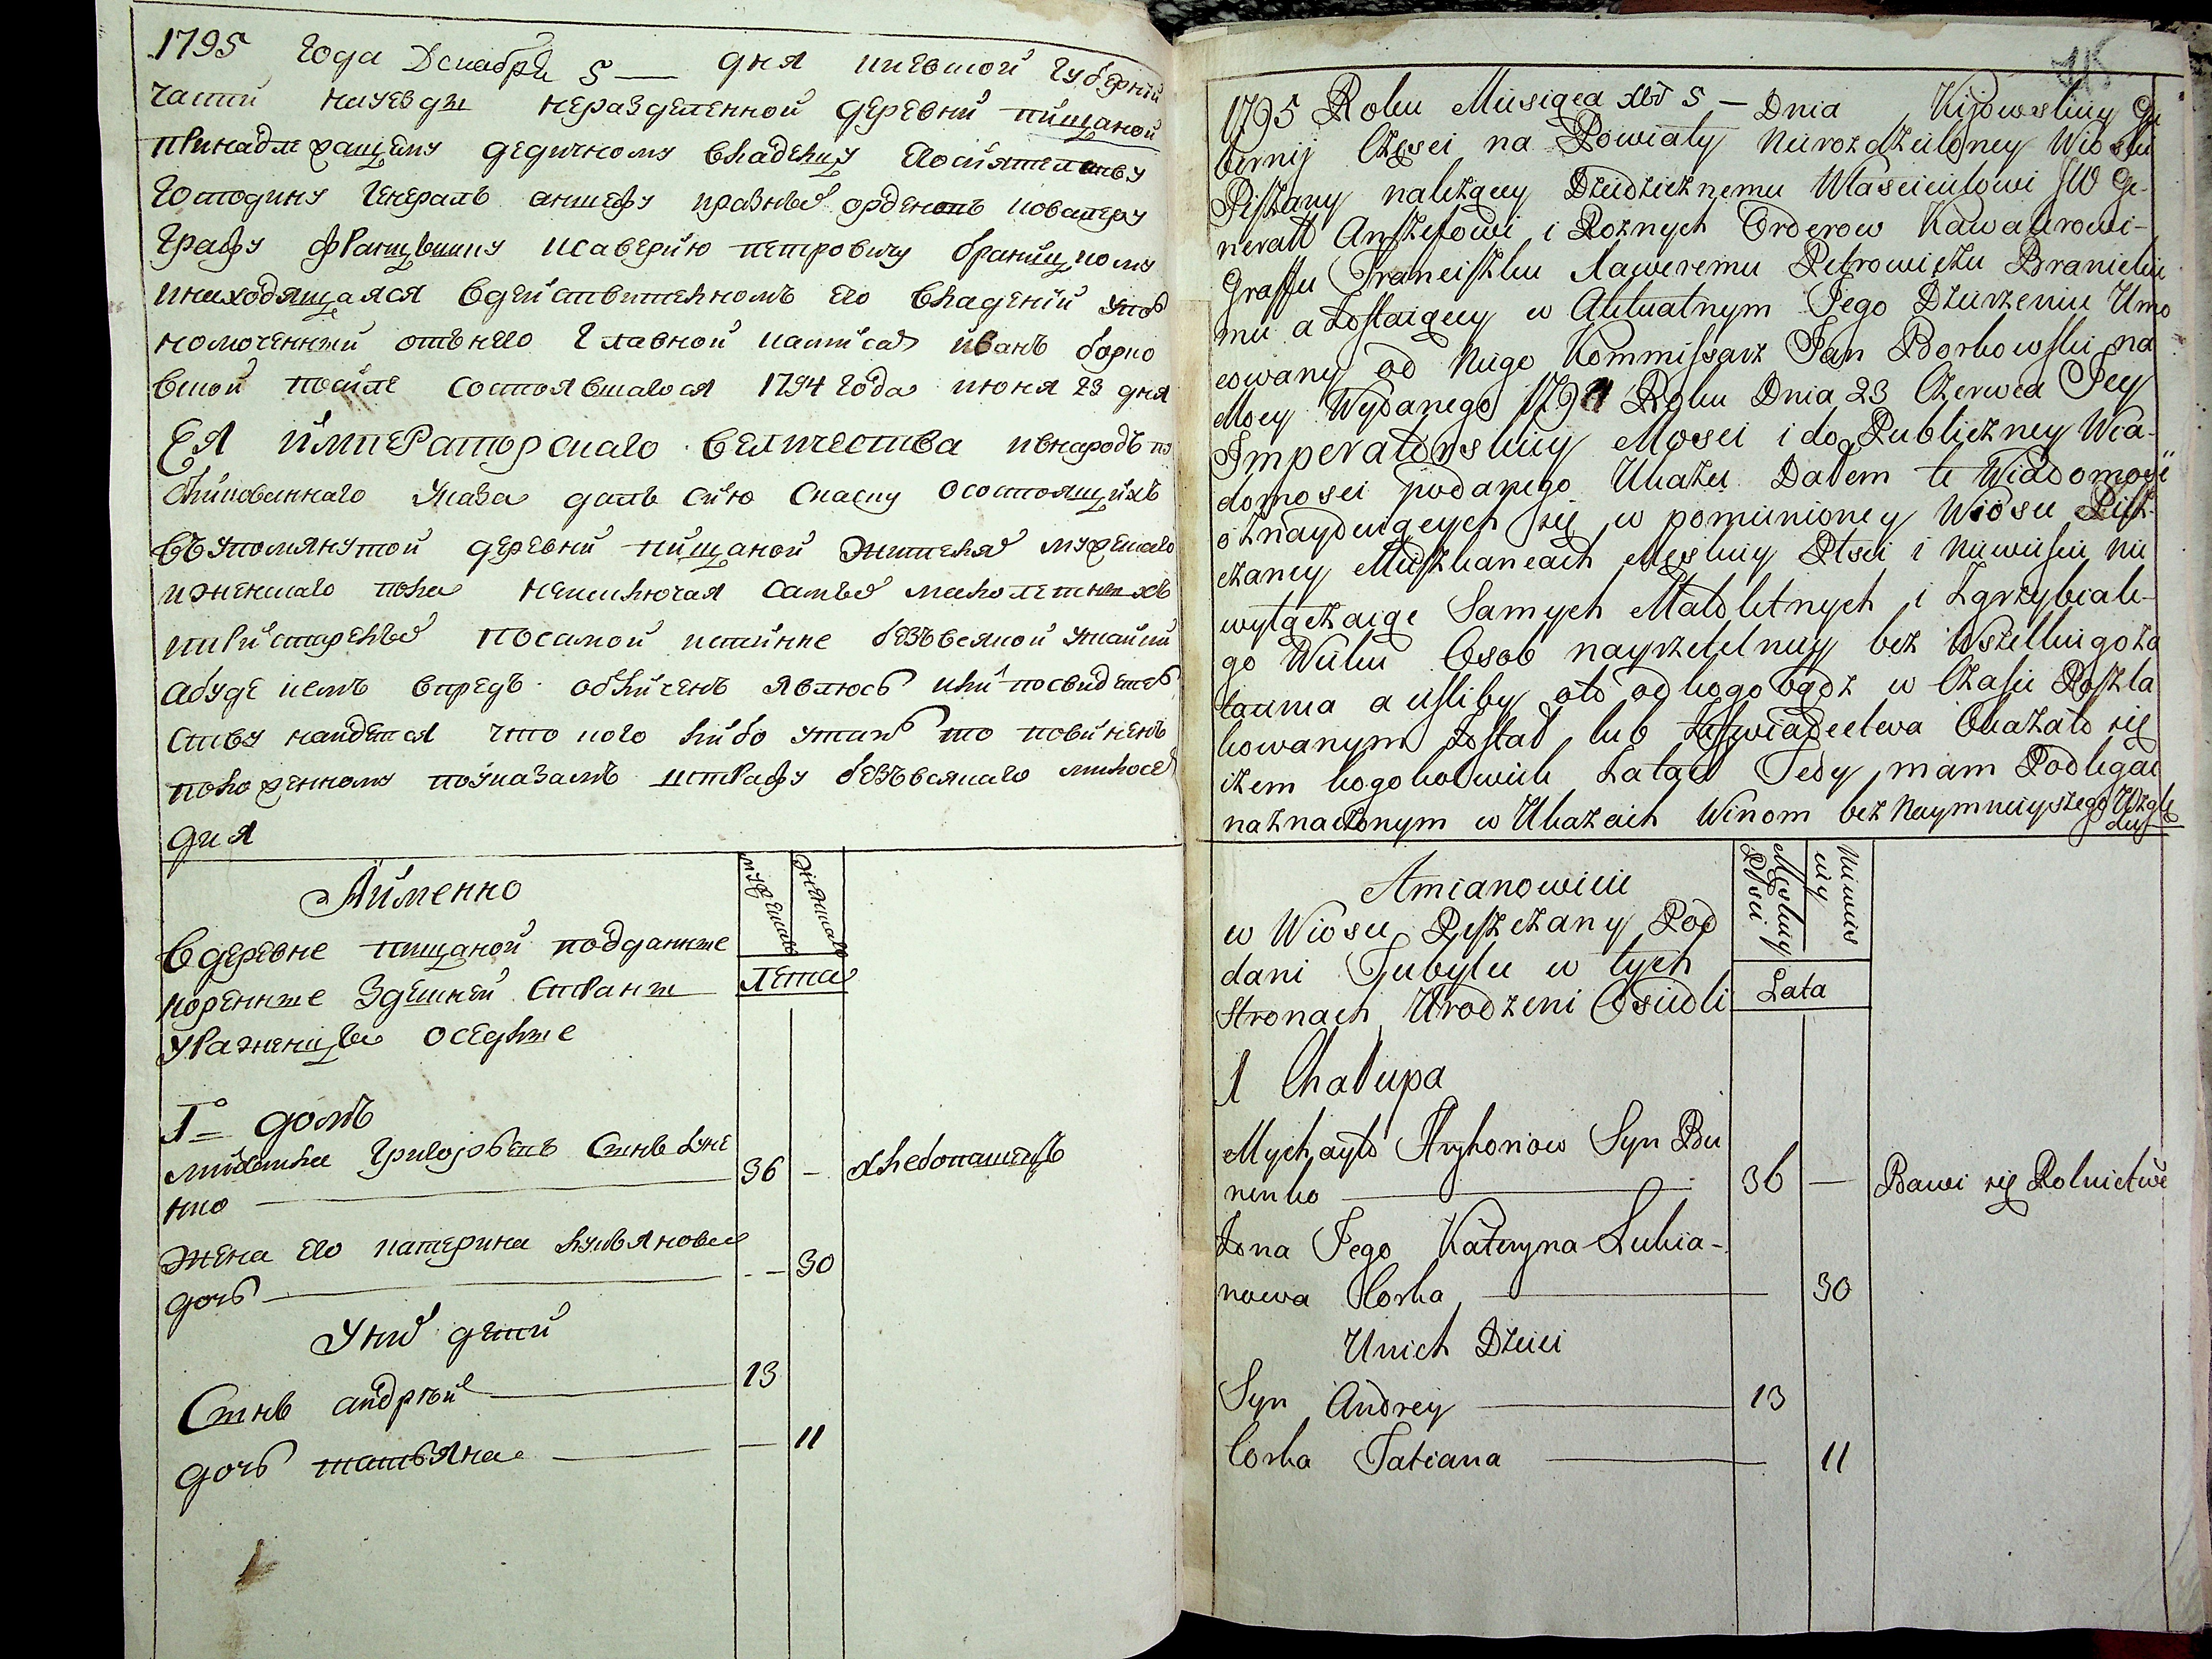 1795 года Декабря 5 — дня киевской губернии
части науезды неразделенной деревни пищаной
принадлежащему дедичному владельцу его сиятельству
господину генералъ аншефу и разныхъ орденовъ ковалеру
графу францышку ксаверию петровичу браницкому
инаходящаяся вдействительномъ его владении упол
номоченный отънего главной комисаръ иванъ борко
вской после состоявшагося 1794 года июня 23 дня
Ея императорскаго величества ивнародъ пу
бликованнаго указа далъ сию скаску осостоящихъ
въупомянутой деревни пищаной жителяхъ мужескаго
иженскаго пола неисключая самыхъ малолетныхъ
ипристарелыхъ посамой истинне безъвсякой утайки
абуде кемъ впредь обличенъ явлюсь или посвидетель
ству найдется что кого либо утаилъ то повиненъ
положенному поуказамъ штрафу безъвсякаго милосер
дия
Аименно
вдеревне пищаной подданные
коренные здешней страны
уроженцы оседлые
мужеска
женскаго
Лета
1й домъ
михайла григорьевъ сынъ буне
нко — 36 — хлебопашецъ
жена его катерина лукьянова
дочь — 30
Унихъ дети
Сынъ андрей — 13
дочь татьяна — 11
1795 Roku Miesiąca Xbr 5 — Dnia Kijowskiey Gu
bernij Części na Powiaty Nierozdzieloney Wioski
Piszczany należącey Dziedzicznemu Właścicielowi JW Ge-
nerałł Anszefowi i Rożnych Orderow Kawalerowi-
Graffu Franciszku Xaweremu Petrowiczu Branickie
mu a Zostaiącey w Aktualnym Jego Dzierzeniu Umo
cowany od Niego Kommissarz Jan Borkowski na
Mocy Wydanego 1794 Roku Dnia 23 Czerwca Jey
Imperatorskiey Mosci i do Publiczney Wia-
domosci podanego Ukazu Dałem te Wiadomość
o znayduiących się w pomienioney Wiosce Pisz-
czaney Mieszkancach Męskiey Płci i Niewieściey nie
wyłączaiąc Samych Małoletnych i Zgrzybiałe-
go Wieku Osob nayrzetelniey bez Wszelkiego Za
taienia a iesliby oto od kogo bądz w Czasie Poszla
kowanym Został lub Zaswiadectwa Okazało się
iżem kogokolwiek Zataił Tedy mam Podlegać
naznaczonym w Ukazach Winom bez Naymnieyszego Wzglę
du
Amianowicie
w Wiosce Peszczany Pod
dani Tubylce w tych
Stronach Urodzeni Osiedli
Męskiey Płci
Niewieściey
Lata
1 Chałupa
Mychayło Hryhorow Syn Bu
nenko — 36 — Bawi się Rolnictwe
Żona Jego Kateryna Lukia-
nowa Corka — 30
Unich Dzieci
Syn Andrey — 13
Corka Tatiana — 11